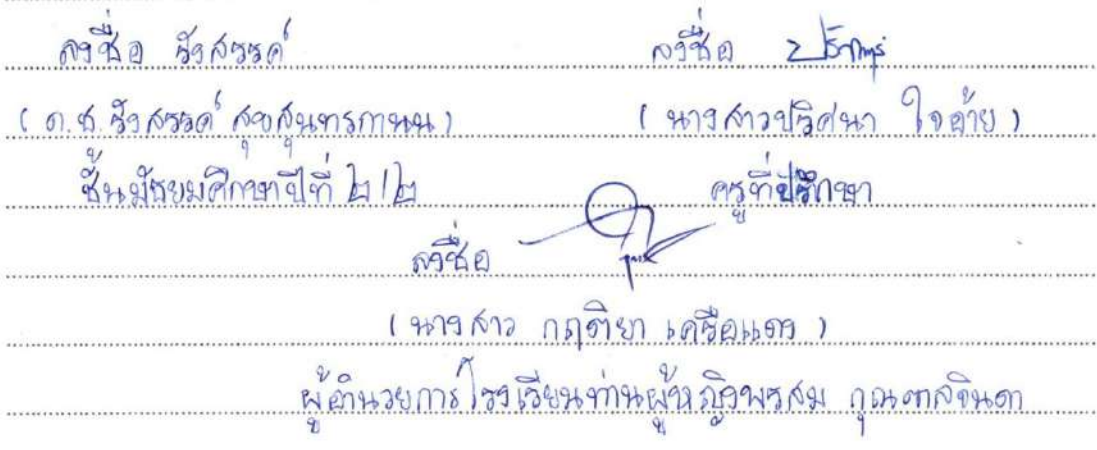 ลงชื่อ รังสรรค์ ลงชื่อ
( ด.ช. รังสรรค์ สุขสุนทรกานน ) ( นางสาวปริศนา ใจอ้าย )
ชั้นมัธยมศึกษาปีที่ ๒/๒ ครูที่ปรึกษา
ลงชื่อ
( นางสาว กฤติยา เครือแดง )
ผู้อำนวยการโรงเรียนท่านผู้หญิงพรสม กุณฑลจินดา